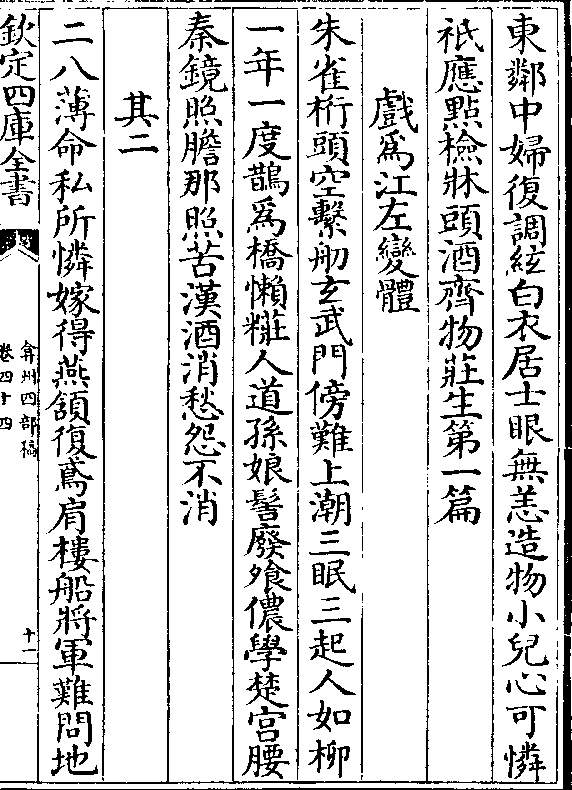 東鄰中婦復調絃白衣居士眼無恙造物小兒心可憐
祇應㸃檢牀頭酒齊物莊生第一篇
戲為江左變體
朱雀桁頭空繫舠玄武門傍難上潮三眠三起人如柳
一年一度鵲為橋懶粧人道孫娘髻廢飧儂學楚宮腰
秦鏡照膽那照苦漢酒消愁怨不消
其二
二八薄命私所憐嫁得燕頷復鳶肩樓船將軍難問地
欽定四庫全書
弇州四部稿
卷四十四
十一